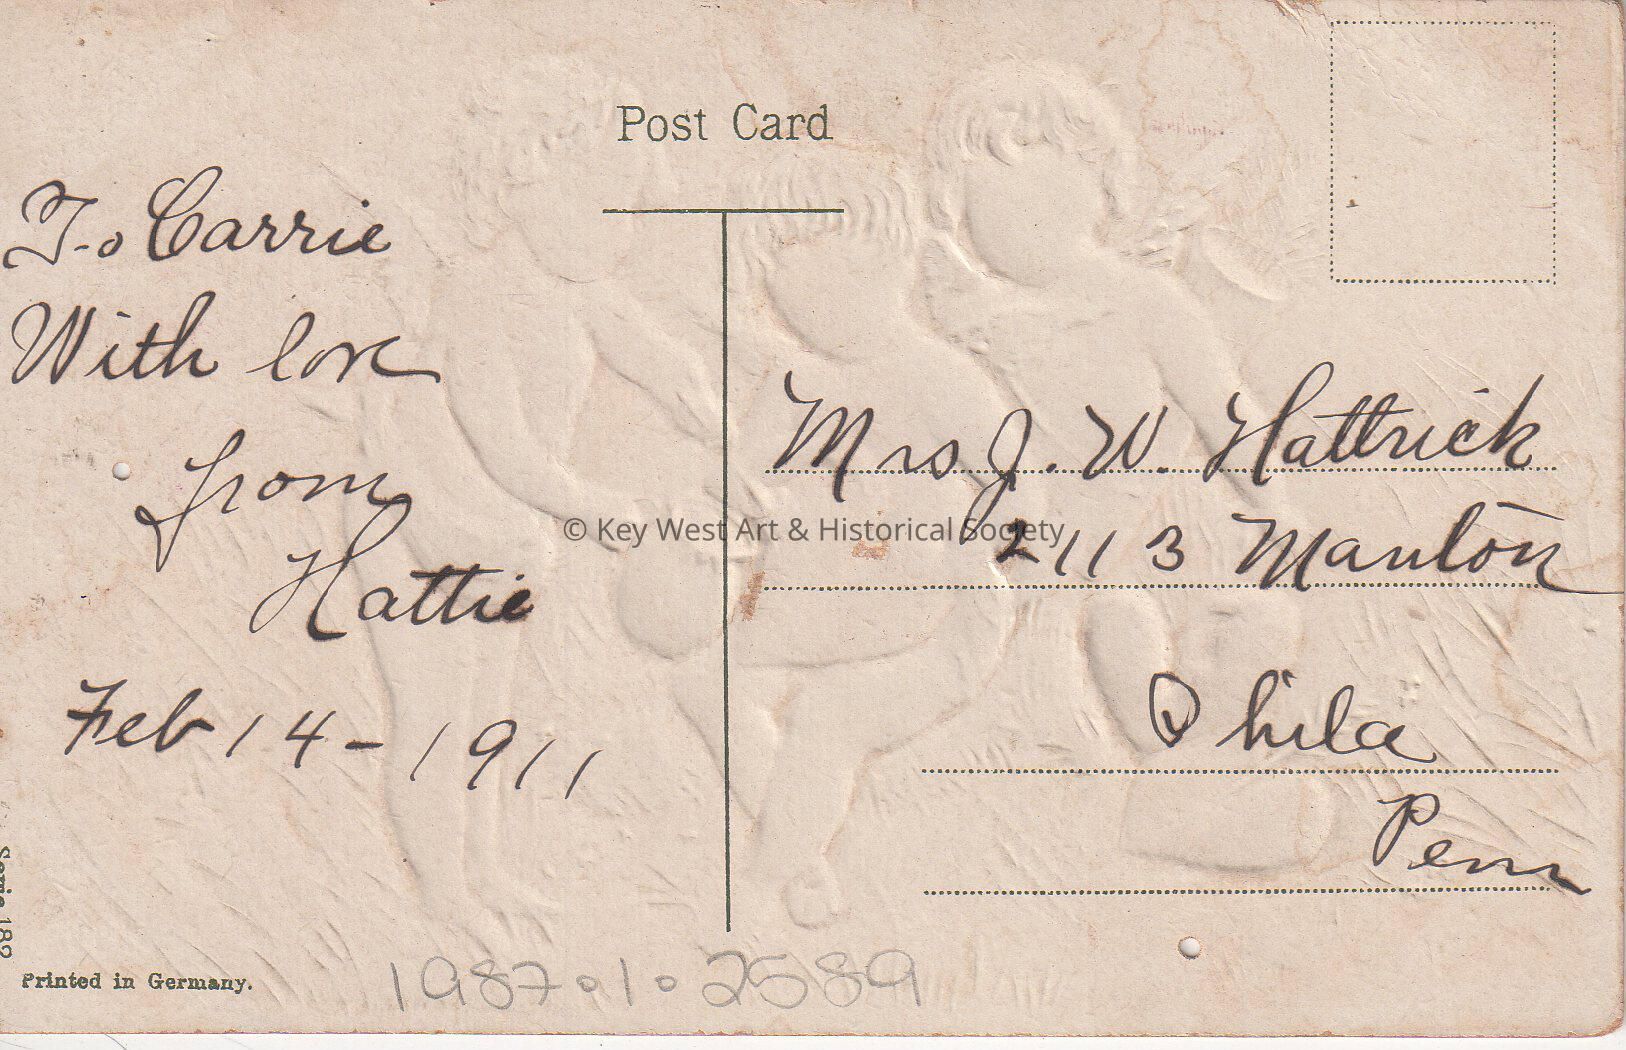 Post Card
To Carrie
With love
from
Hattie
Feb 14-1911
Mrs J. W. Hattrick
2113 Manton
Phila
Penn
© Key West Art & Historical Society
Serie 182
Printed in Germany.
1987.1.2589